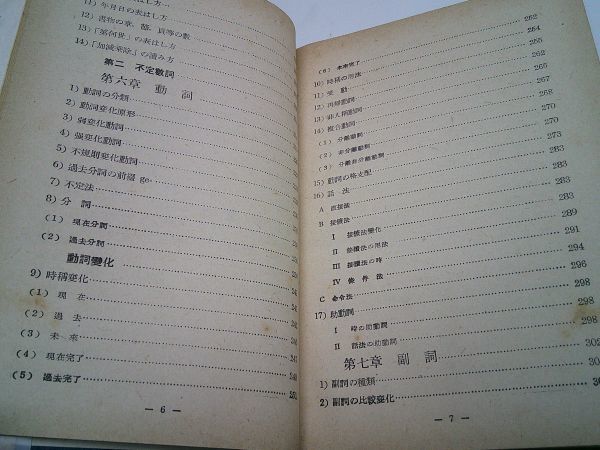 11) 年月日の表はし方
12) 書物の章、節、頁等の數
13) 「第何世」の表はし方
14) 「加減乗除」の読み方
第二 不定數詞
第六章 動詞
1) 動詞の分類
2) 動詞変化原形
3) 弱変化動詞
4) 强変化動詞
5) 不規則変化動詞
6) 過去分詞の前綴 ge-
7) 不定法
8) 分詞
(1) 現在分詞
(2) 過去分詞
動詞變化
9) 時稱変化
(1) 現在
(2) 過去
(3) 未來
(4) 現在完了 247
(5) 過去完了
— 6 —
262
(6) 未來完了 264
10) 時稱の用法 262
11) 受動 265
12) 再帰動詞 267
13) 非人稱動詞 268
14) 複合動詞 270
(1) 分離動詞 270
(2) 非分離動詞 273
(3) 分離非分離動詞 275
15) 動詞の格支配 283
16) 話法 283
A 直接法 283
B 接續法 283
I 接續法変化 289
II 接續法の用法 291
III 接續法の時 294
IV 條件法 296
C 命令法 298
17) 助動詞 298
I 時の助動詞 298
II 話法の助動詞 298
第七章 副詞 302
1) 副詞の種類
2) 副詞の比較変化
— 7 —